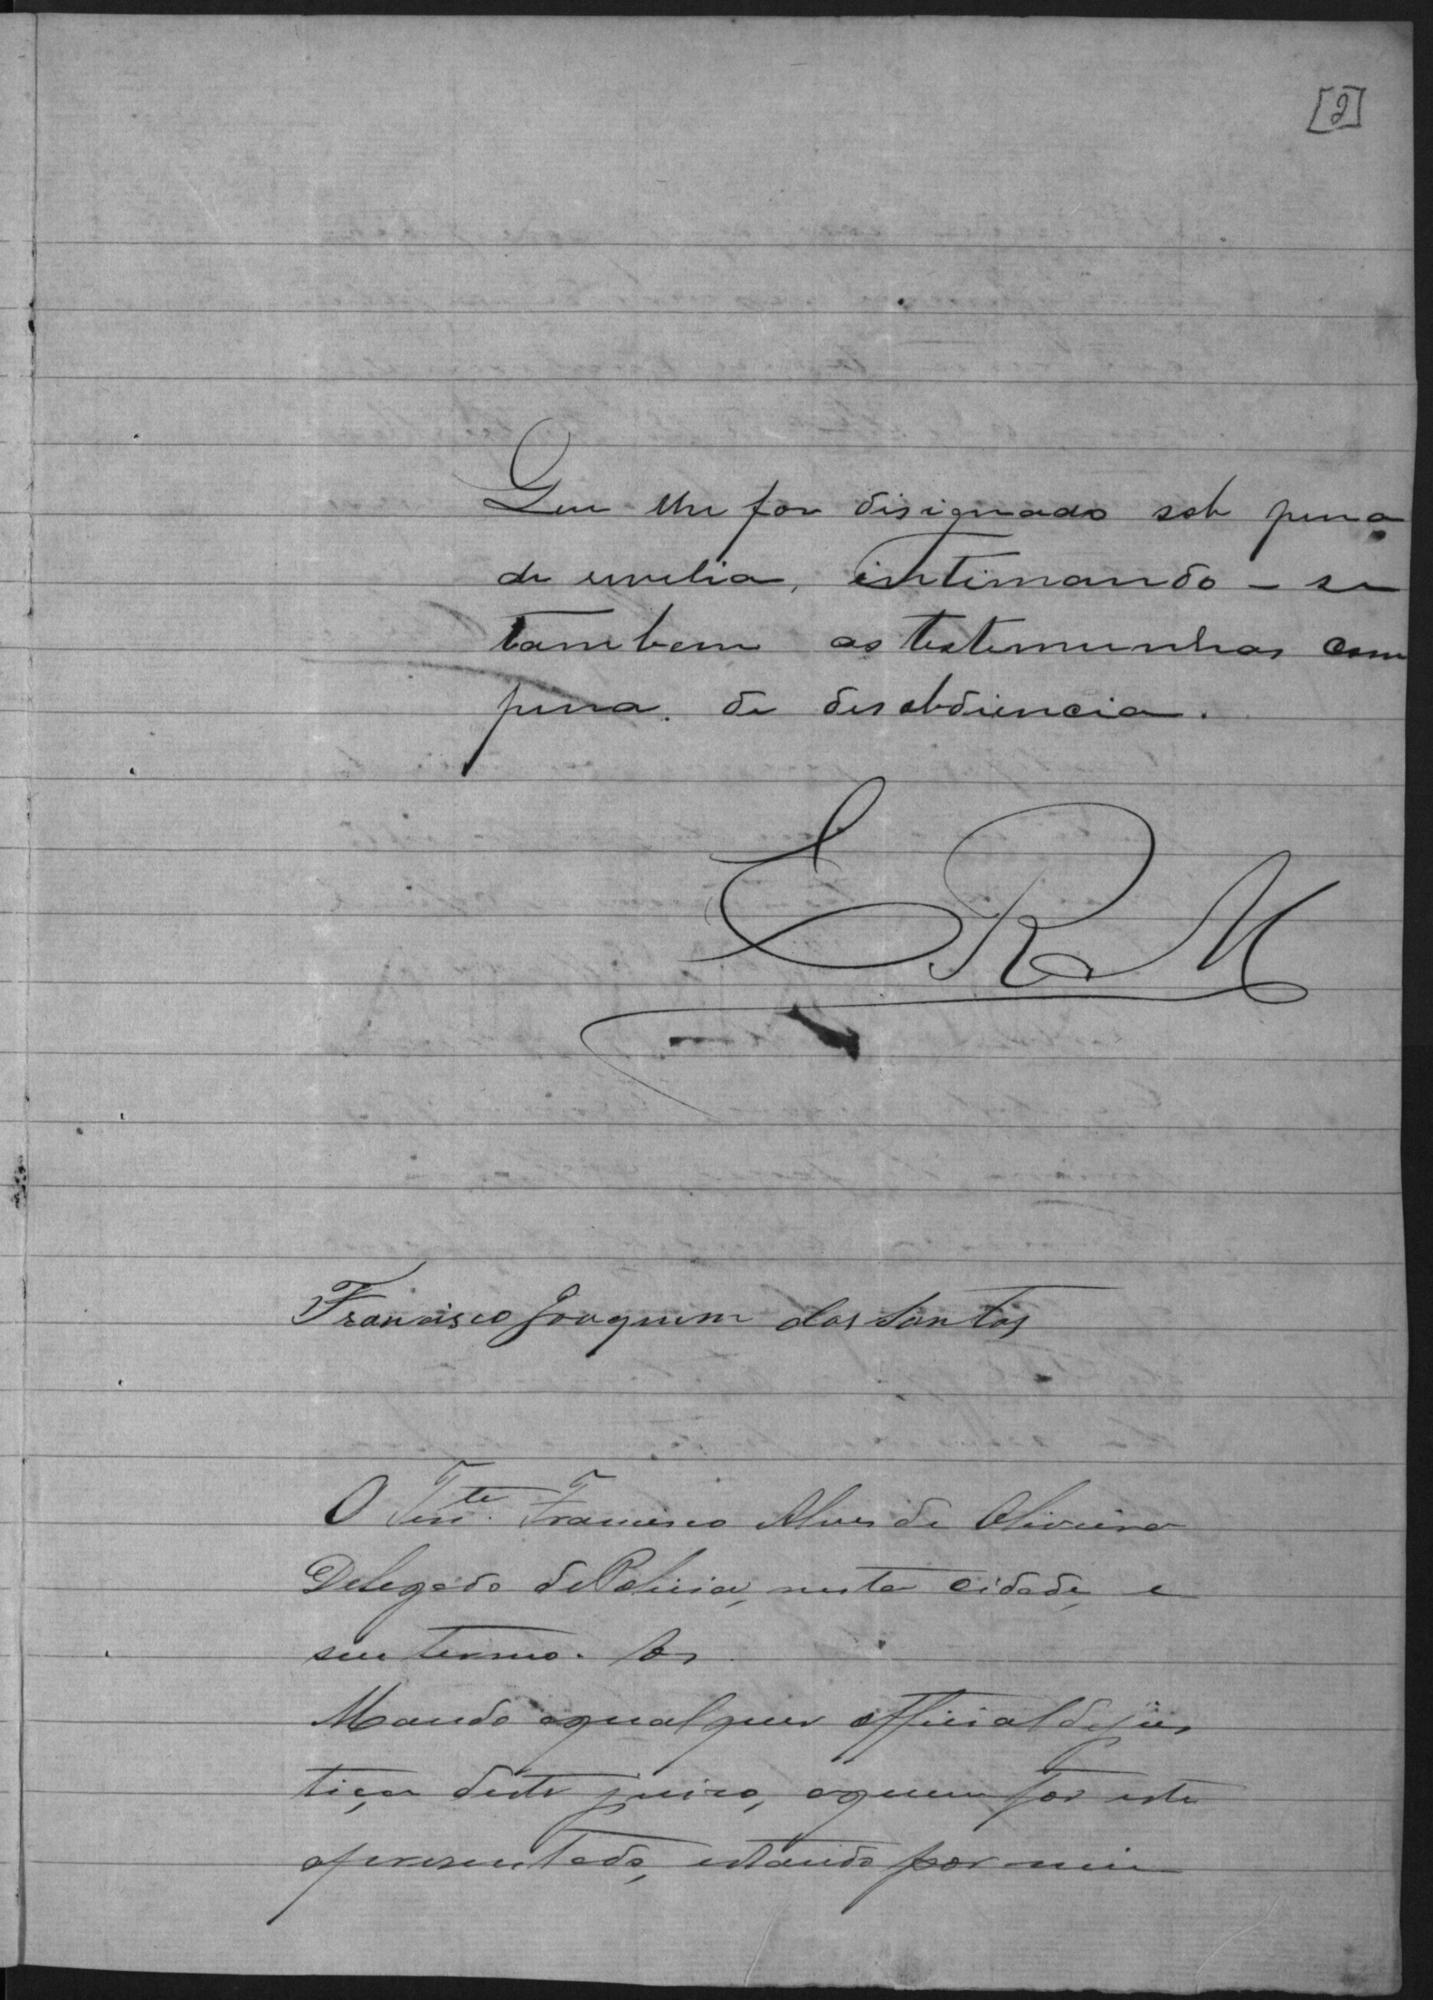 [2]
Que lhe for disignado sob pena
de revelia, intimando-se
tambem as testemunhas com
pena de desobdiencia.
E. R. M
Francisco Joaquim dos Santos
O Tente. Francisco Alves de Oliveira
Delegado de Policia, nesta cidade, e
seu termo. &
Mando aqualquer official dejus
tiça deste juizo, aquem for este
apresentado, estando por mim